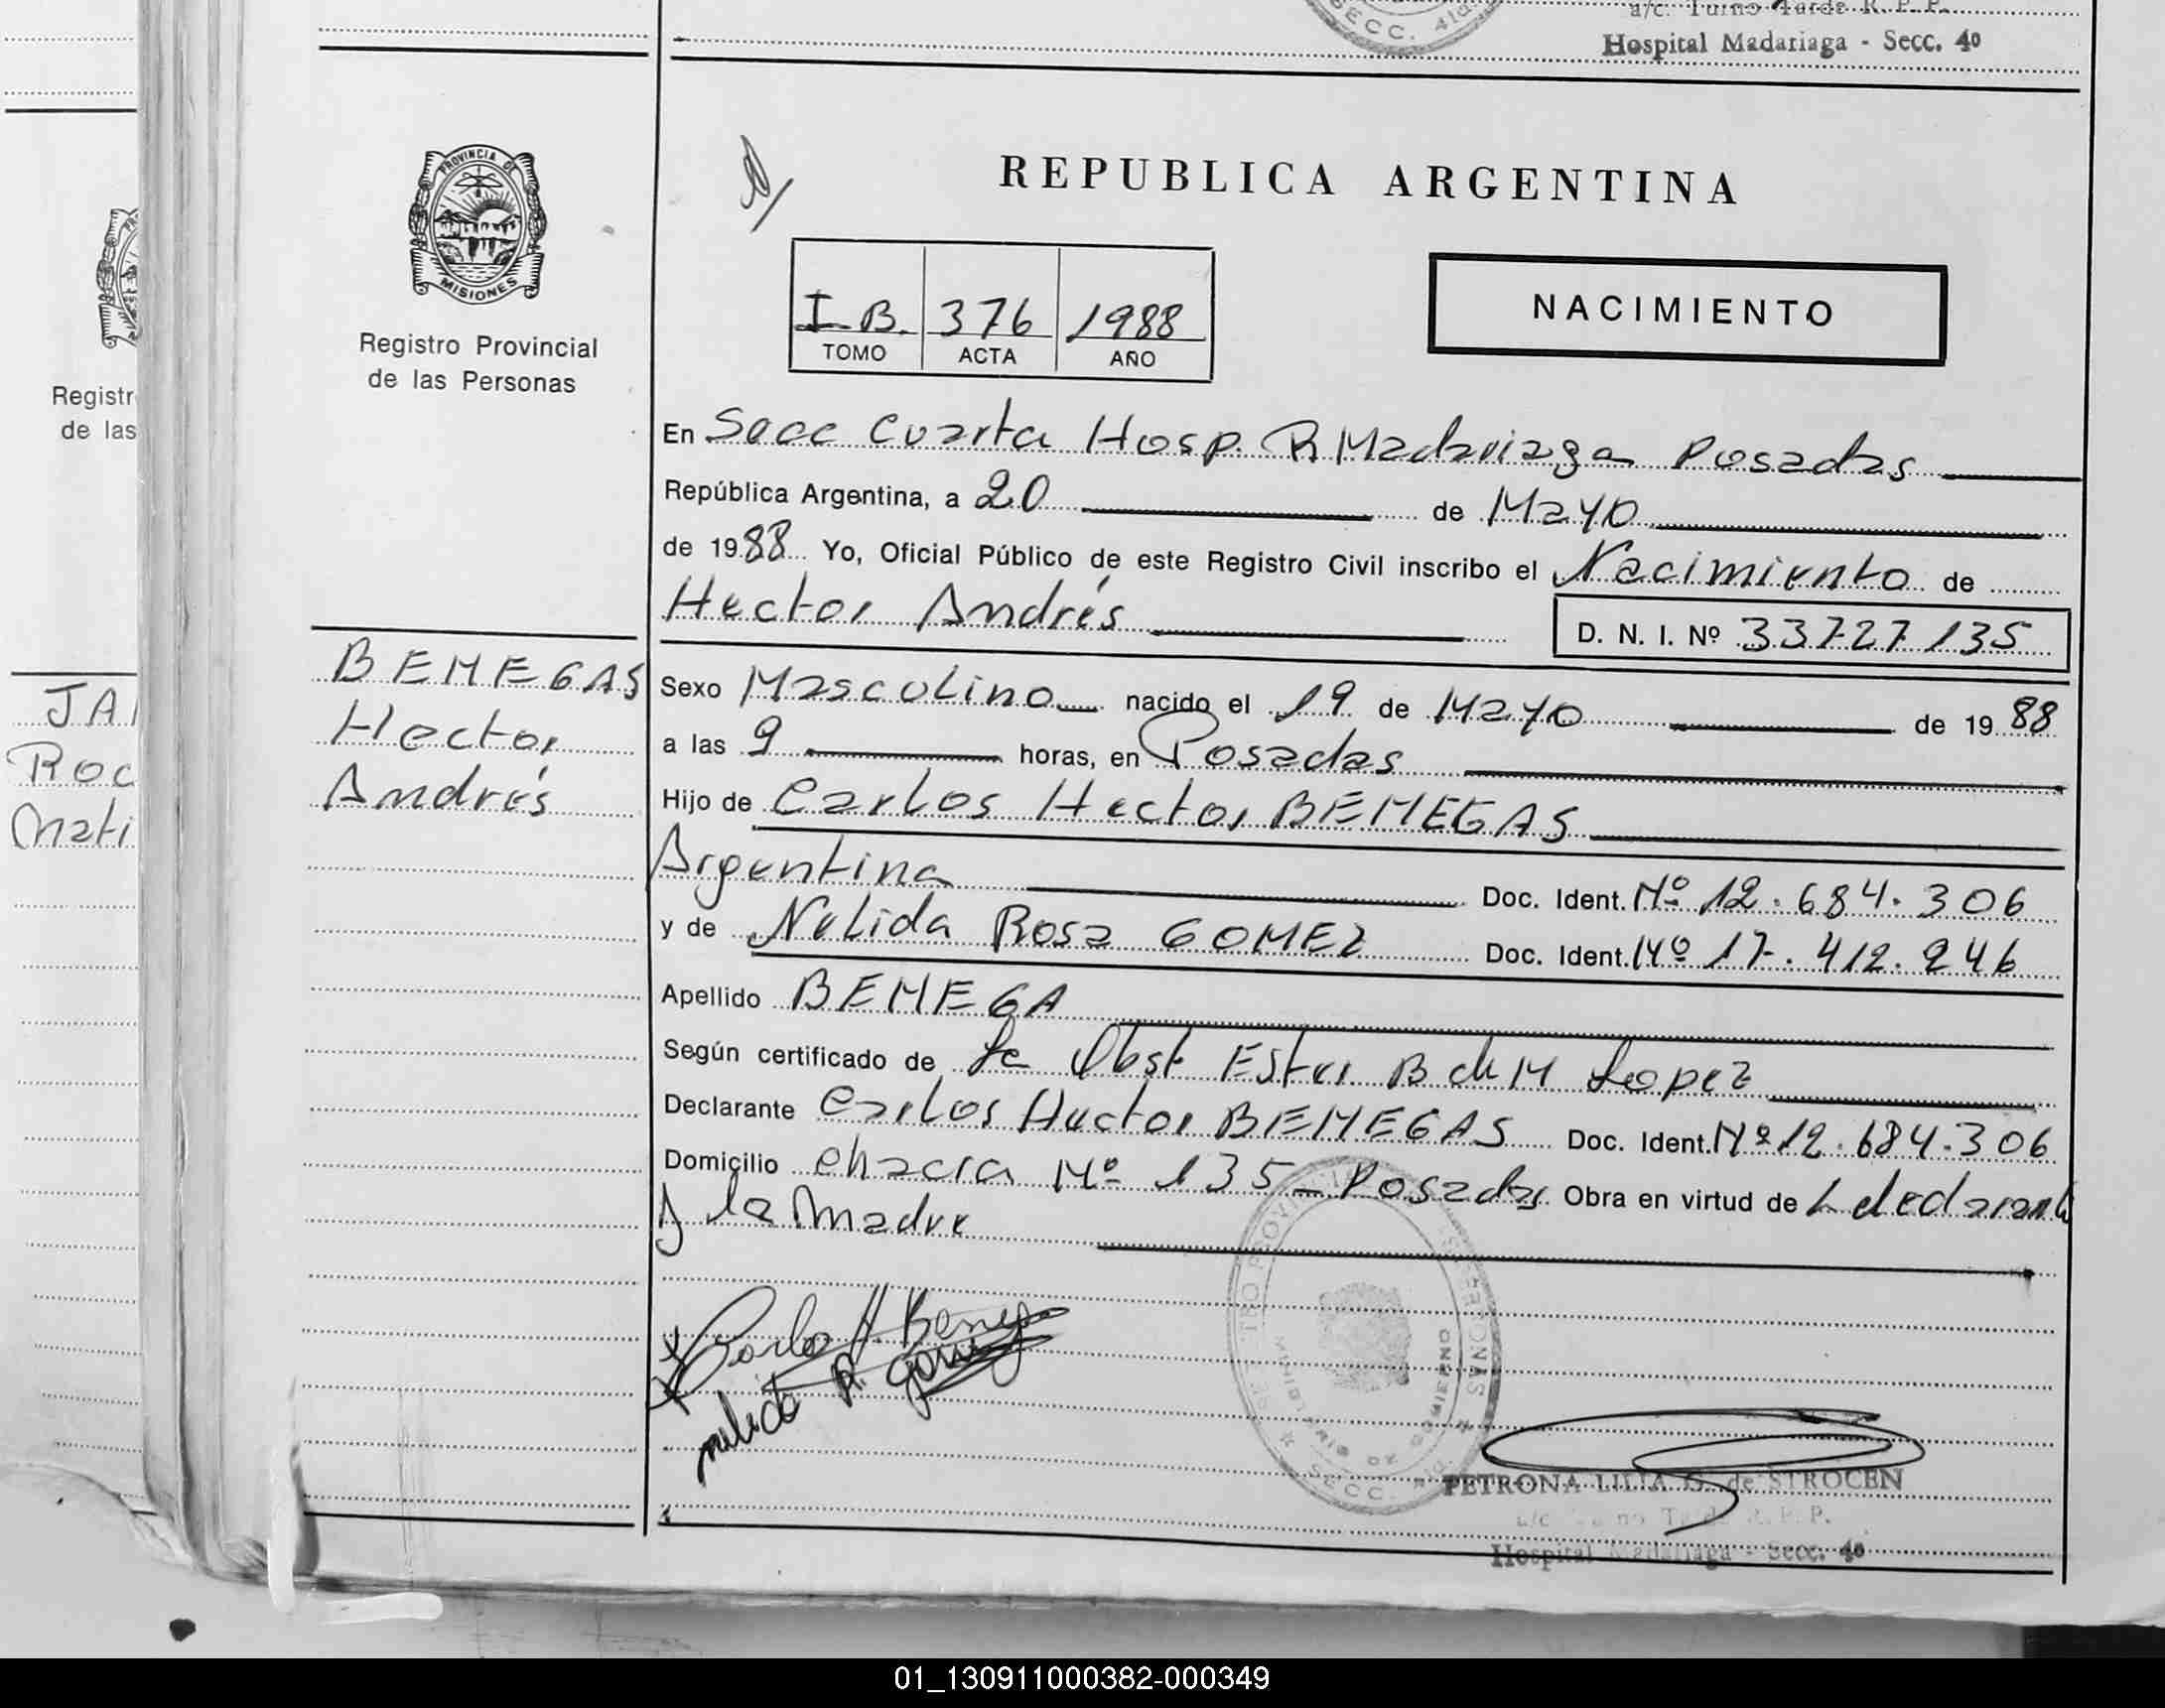 a/c. Turno Tarde R. P. P.
SECC. 4ta
Hospital Madariaga - Secc. 4º
PROVINCIA DE
MISIONES
Registro Provincial
de las Personas
Registr
de las
REPUBLICA ARGENTINA
NACIMIENTO
I B. 376 1988
TOMO ACTA AÑO
En Secc Cuarta Hosp. R Madariaga Posadas
República Argentina, a 20 de Mayo
de 1988 Yo, Oficial Público de este Registro Civil inscribo el Nacimiento de
Hector Andrés
D. N. I. Nº 33727135
BENEGAS
Hector
Andrés
JA
Roc
Mati
Sexo Masculino nacido el 19 de Mayo de 1988
a las 9 horas, en Posadas
Hijo de Carlos Hector BENEGAS
Argentina Doc. Ident. Nº 12.684.306
y de Nelida Rosa GOMEZ Doc. Ident. Nº 17.412.246
Apellido BENEGA
Según certificado de La Obst Ester B de M Lopez
Declarante Carlos Hector BENEGAS Doc. Ident. Nº 12.684.306
Domicilio chacra Nº 135 - Posadas Obra en virtud de
y la Madre
Carlos H. Beneg
nelida R. gomez
MINISTERIO DE GOBIERNO
SECC.
PETRONA LILIA G. de STROCEN
Hospital Madariaga - Secc. 4º
01_130911000382-000349